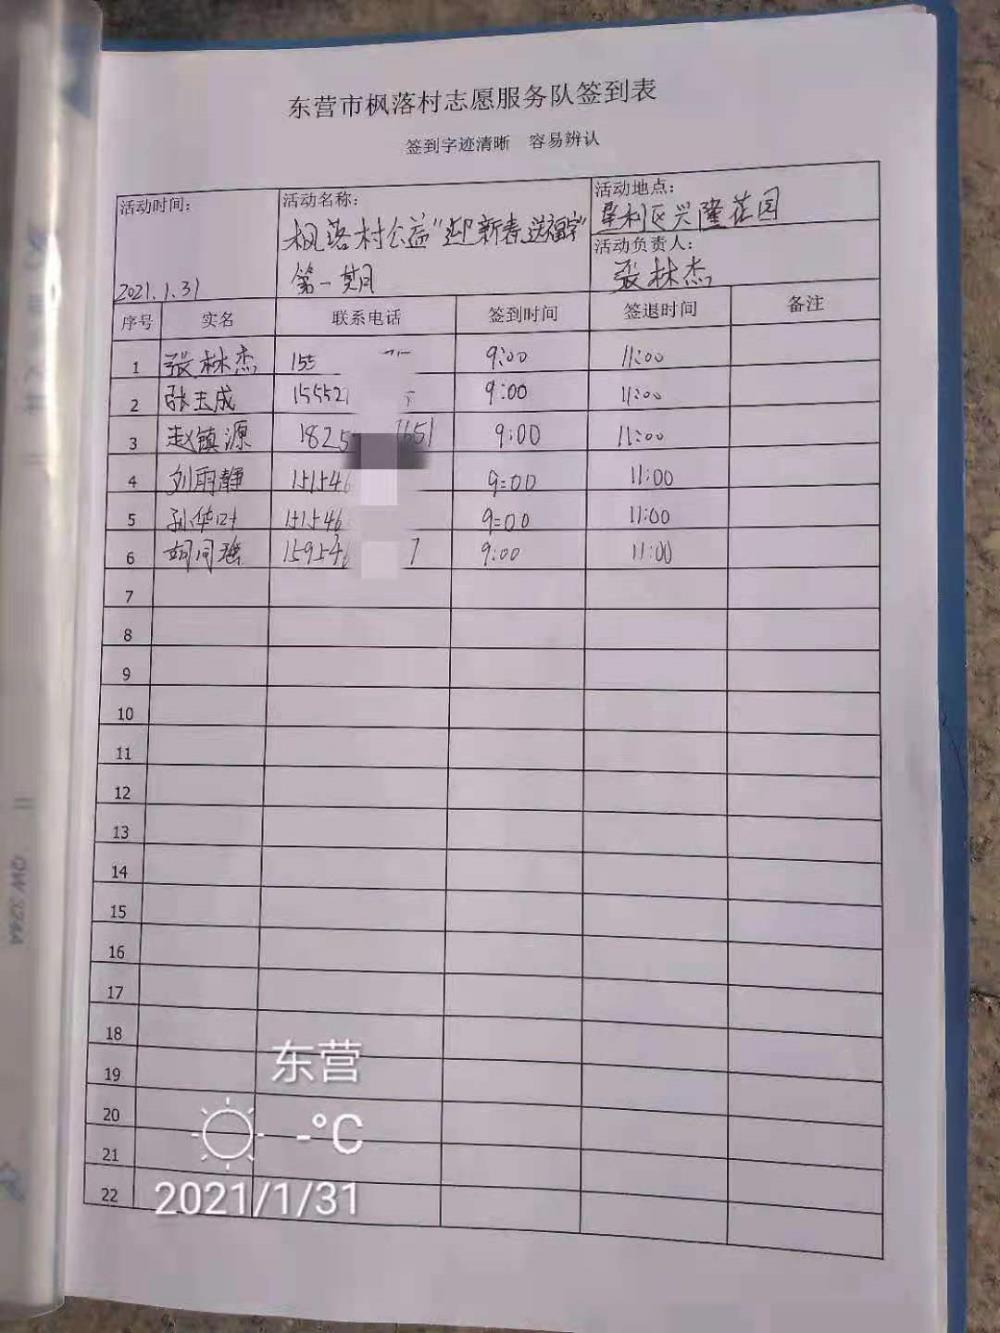 东营市枫落村志愿服务队签到表
签到字迹清晰 容易辨认
活动时间：
2021.1.31
活动名称：
枫落村公益“迎新春送福字”
第一期
活动地点：
垦利区兴隆花园
活动负责人：
张林杰
序号 实名 联系电话 签到时间 签退时间 备注
1 张林杰 155 9:00 11:00
2 张玉成 15552 9:00 11:00
3 赵镇源 1825 1651 9:00 11:00
4 刘雨静 151546 9:00 11:00
5 孙华叶 151546 9:00 11:00
6 胡同瑶 159546 7 9:00 11:00
7
8
9
10
11
12
13
14
15
16
17
18
19
20
21
22
东营
-°C
2021/1/31